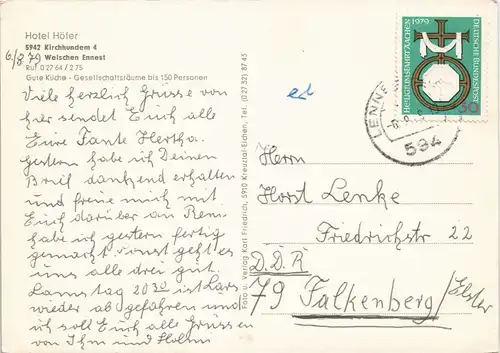 Hotel Höfer
5942 Kirchhundem 4
6/8.79 Welschen Ennest
Ruf 0 27 64 / 2 75
Gute Küche - Gesellschaftsräume bis 150 Personen
Viele herzlich Grüsse von
hier sendet Euch alle
Eure Tante Hertha.
gestern habe ich Deinen
Brief dankend erhalten
und freue mich mit
Euch darüber an Rem
habe ich gestern fertig
gemacht, sonst geht es
uns alle drei gut.
Samstag 20 30 ist Lars
wieder abgefahren und
ich soll Euch alle Grüssen
von Ihm und
Foto u. Verlag Karl Friedrich, 5910 Kreuztal-Eichen, Tel. (0 27 32) 87 43
HEILIGTUMSFAHRT AACHEN
1979
DEUTSCHE BUNDESPOST
50
LENNE
594
Herrn
Horst Lenke
Friedrichstr 22
D.D.R
79 Falkenberg/Elster